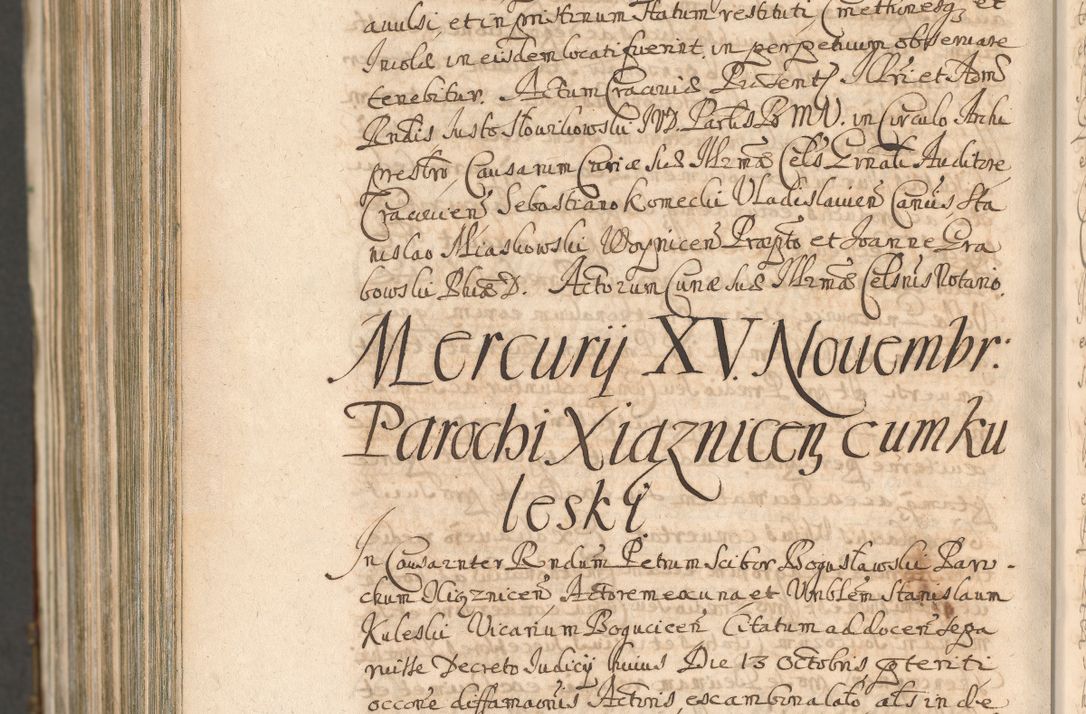 auulsi, et in pristinum statum restituti Cmethonesq3 et
Inolæ in eisdem locati fuerint, in perpetuum obseruare
tenebitur. Actum Cracouiæ Præsentt Illri et Adm
Rndis Justo Słowikowski IVD. Parlis B MV. in Circulo Archi
presbro, Causarum Curiæ Suæ Illrmæ Cels Ernali Auditore,
Cracouien Sebastiano Komecki Vladislauien Cancis, Sta
nislao Miaskowski Woynicen Præpto et Joanne Gra
bowski Phiæ D. Actorum Curiæ Suæ Illrmæ Celsnis Notario.
Mercurij XV. Nouembr:
Parochi Xiąznicen cum Ku
leski
In Causa inter Rndum Petrum Scibor Bogusławski Paro-
chum Xiąznicen Actorem ex una et Vnblem Stanislaum
Kuleski Vicarium Bogucicen Citatum ad docen se pa
ruisse Decreto Judicij huius Die 13 Octobris pteriti
occone diffamaonis Actoris, es cambona lato, als in de